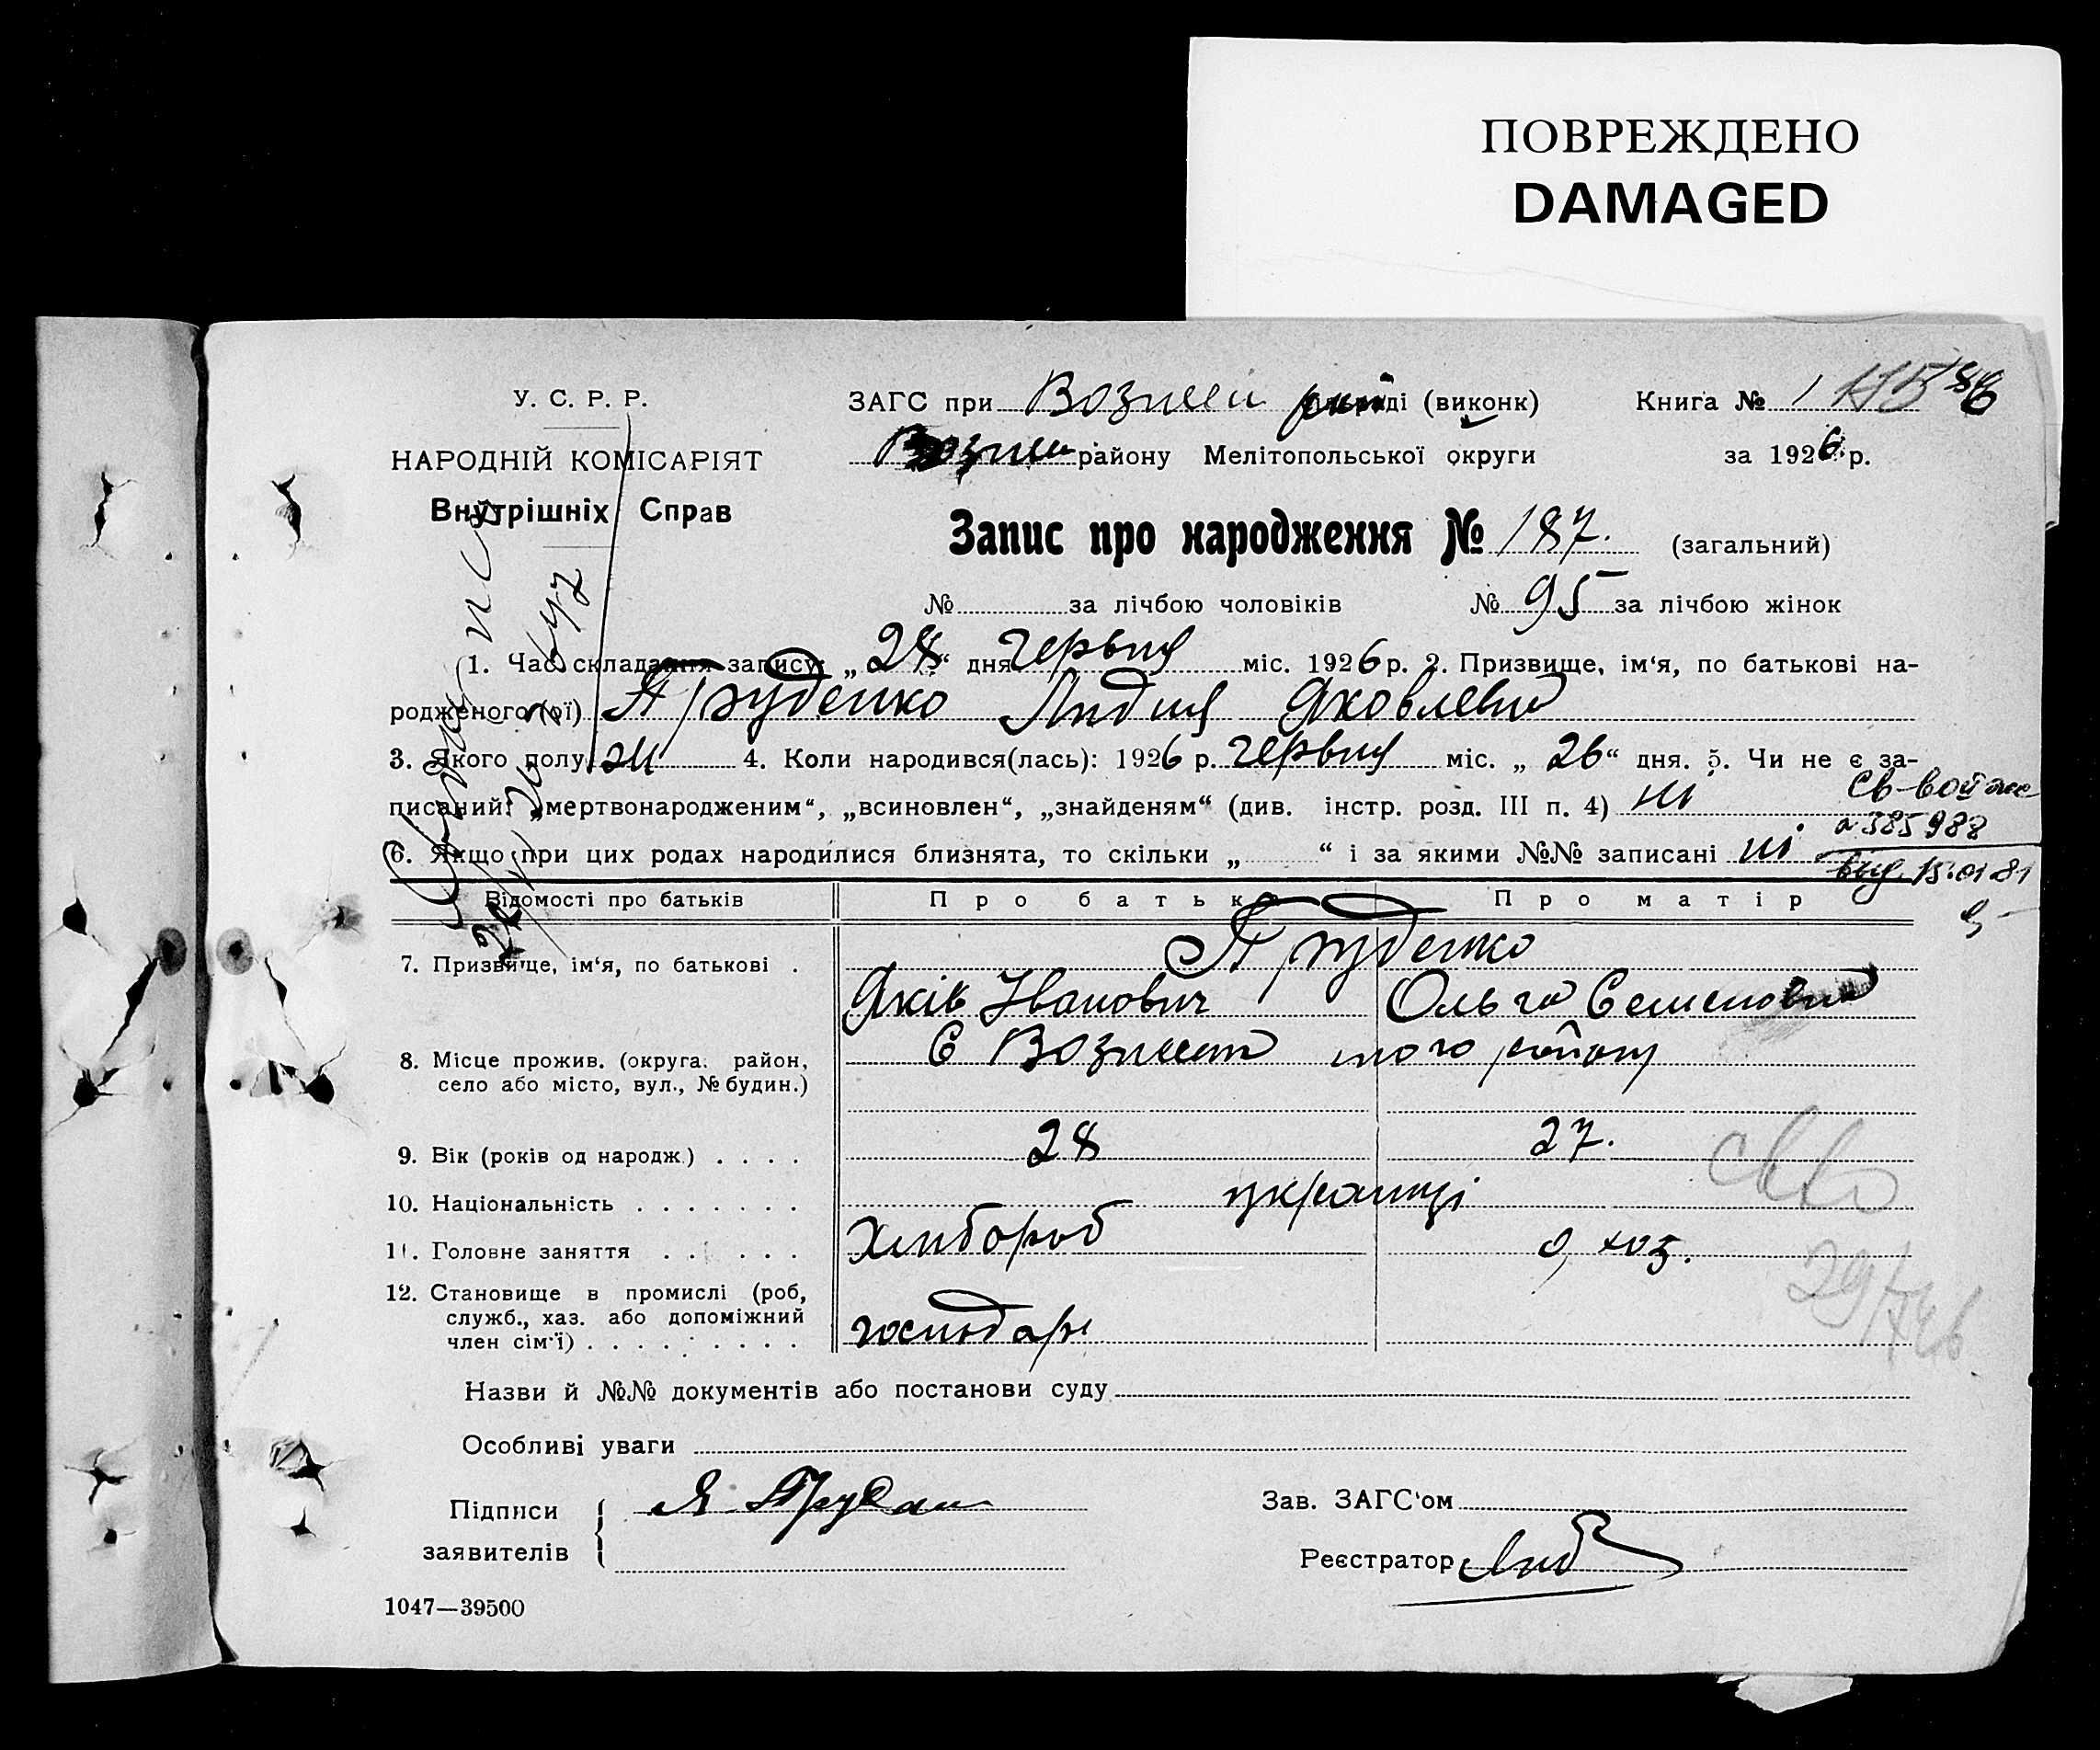 ПОВРЕЖДЕНО
DAMAGED
У. С. Р. Р.
НАРОДНІЙ КОМІСАРІЯТ
Внутрішніх Справ
ЗАГС при Возне (виконк)
Книга № 1
району Мелітопольської округи
за 1926 р.
Запис про народження № 187. (загальний)
№ за лічбою чоловіків № 95 за лічбою жінок
1. Час складання запису: „28“ дня червня міс. 1926 р. 2. Призвище, ім‘я, по батькові на-
родженого (ої) Лидия Яковлевна
3. Якого полу жи 4. Коли народився(лась): 1926 р. червня міс. „26“ дня. 5. Чи не є за-
писаний: „мертвонародженим“, „всиновлен“, „знайденям“ (див. інстр. розд. III п. 4) ні
6. Якщо при цих родах народилися близнята, то скільки „ “ і за якими №№ записані ні
385988
15.01.81
Відомості про батьків Про батька Про матір
7. Призвище, ім‘я, по батькові .
Яків Іванович Ольга Семеновна
8. Місце прожив. (округа, район,
село або місто, вул., № будин.)
С Вознесен району
9. Вік (років од народж.) . . . . 28 27.
10. Національність . . . . . . . українці
11. Головне заняття . . . . . . Хлибороб д, хоз.
12. Становище в промислі (роб,
служб., хаз. або допоміжний
член сім‘ї) . . . . . . . . . господарь
Назви й №№ документів або постанови суду
Особливі уваги
Підписи
заявителів
Зав. ЗАГС‘ом
Реєстратор
1047—39500